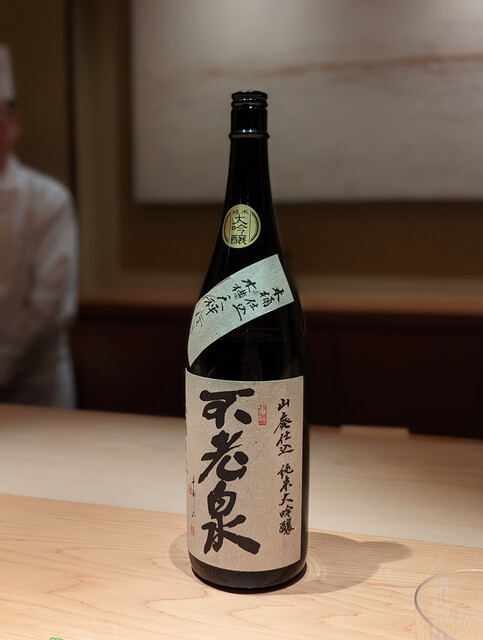 純米
大吟醸
木桶仕込
山廃仕込 純米大吟醸
不老泉